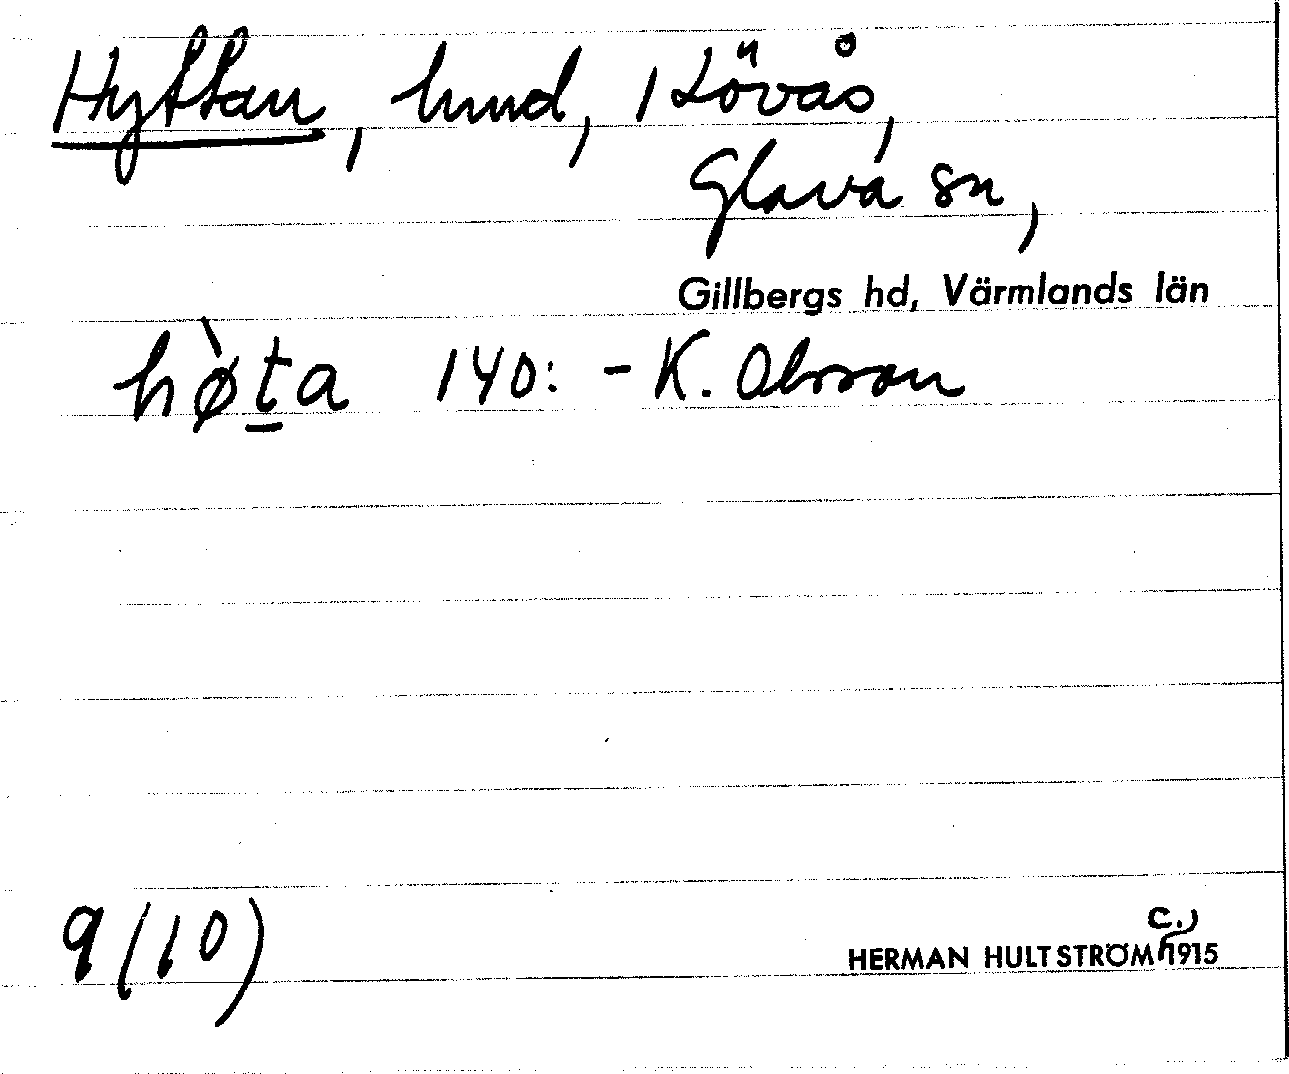 Hyttan, hmd, 1 Kövås,
Glava sn,
Gillbergs hd, Värmlands län
hø̀t̲a 140: - K. Olsson
9 (10)
HERMAN HULTSTRÖM c. 1915